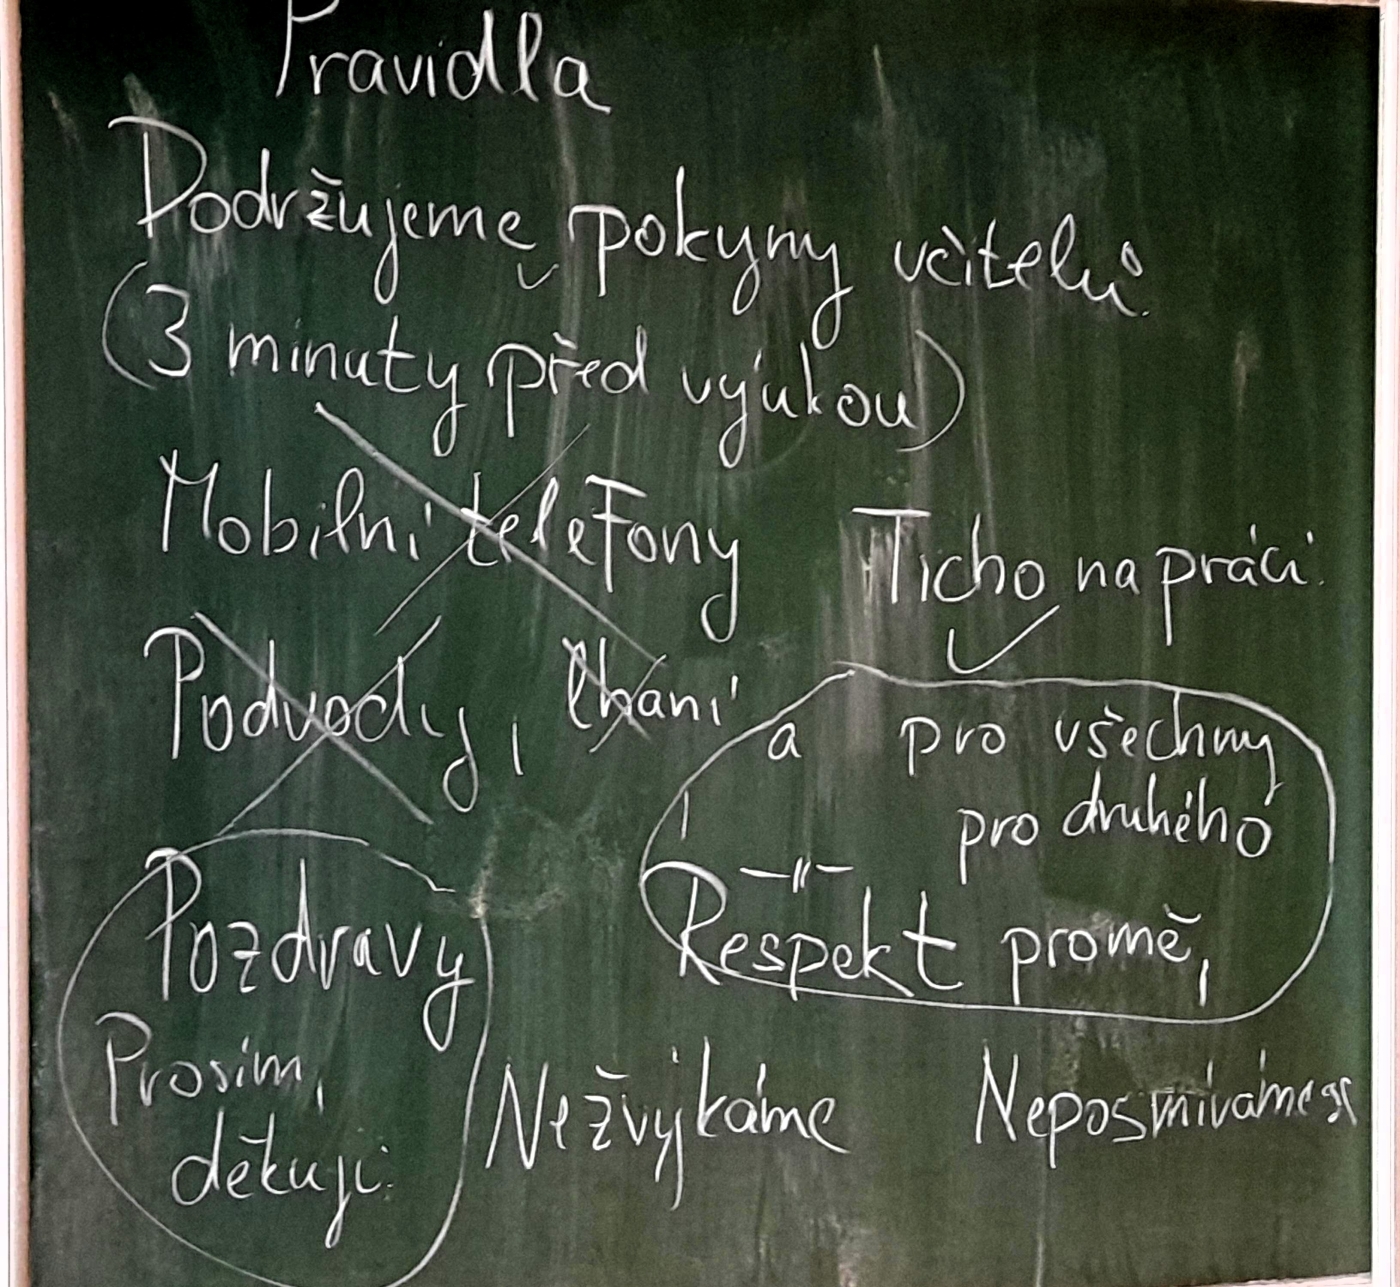 Pravidla
Dodržujeme pokyny učitelů.
(3 minuty před výukou)
Mobilní telefony
Ticho na práci.
Podvody, lhaní
a pro všechny
pro druhého
Respekt pro mě,
Pozdravy
Prosím,
děkuji.
Nežvýkáme
Neposmíváme se